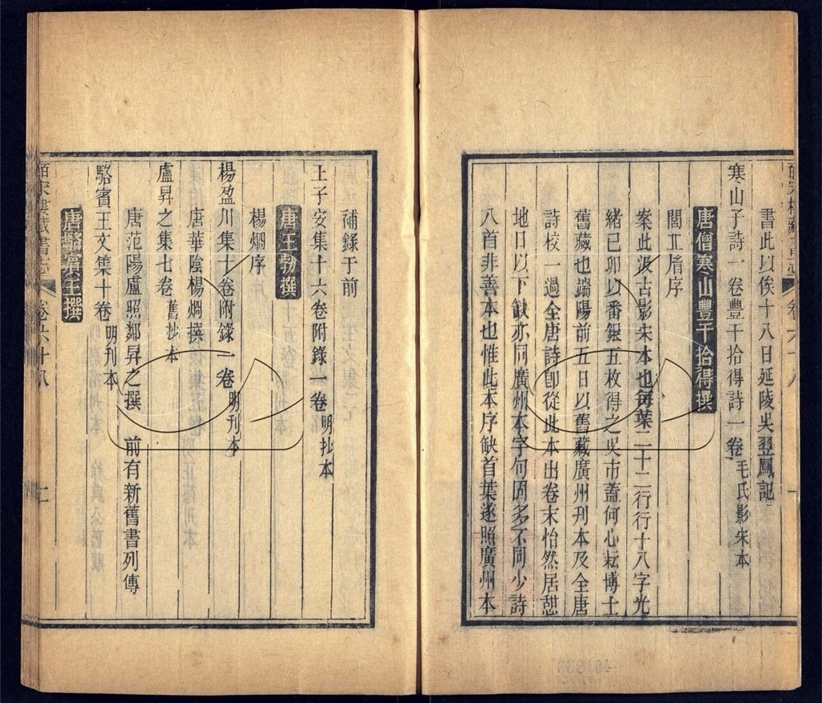 書此以俟十八日延陵吳翌鳳記
寒山子詩一卷豐干拾得詩一卷毛氏影宋本
唐僧寒山豐干拾得撰
閭丘胤序
案此汲古影宋本也每葉二十二行行十八字光
緒己卯以番銀五枚得之吳市蓋何心耘博士
舊藏也端陽前五日以舊藏廣州刊本及全唐
詩校一過全唐詩即從此本出卷末怡然居憩
地日以下缺亦同廣州本字句固多不同少詩
八首非善本也惟此本序缺首葉遂照廣州本
補錄于前
王子安集十六卷附錄一卷明抄本
唐王勃撰
楊烱序
楊盈川集十卷附錄一卷明刊本
唐華陰楊烱撰
盧昇之集七卷舊抄本
唐范陽盧照鄰昇之撰 前有新舊書列傳
駱賓王文集十卷明刊本
唐駱賓王撰
皕宋樓藏書志 卷六十八